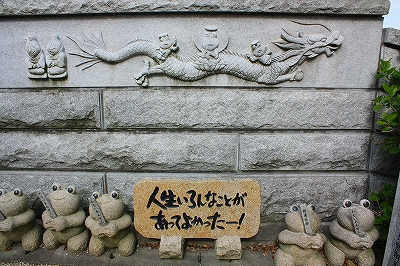 人生いろんなことが
あってよかったー!